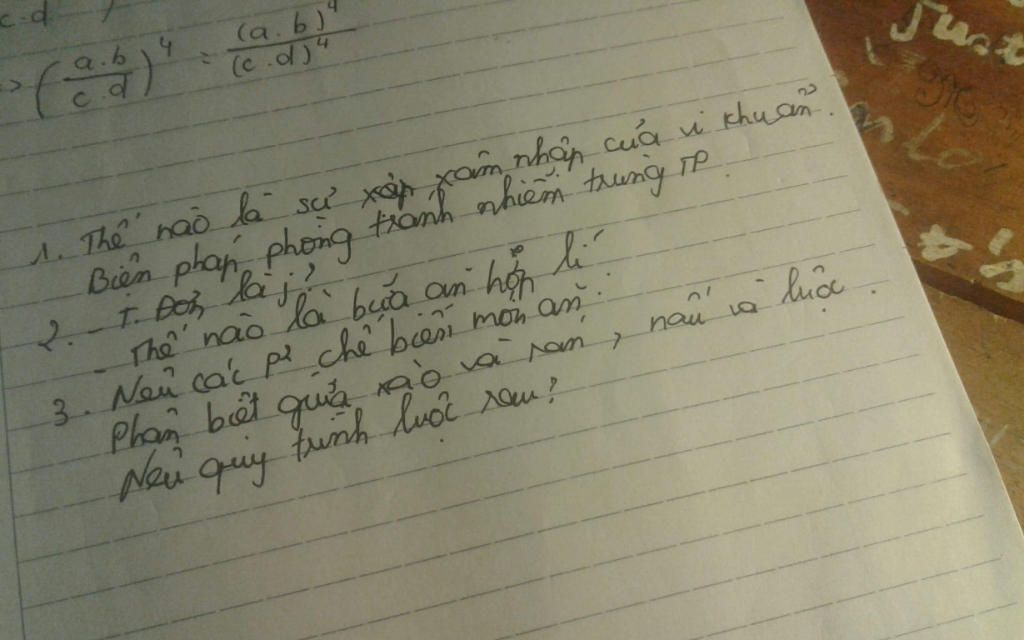 c.d )
=> (a.b/c.d)^4 = (a.b)^4/(c.d)^4
1. Thế nào là sự xâm nhập của vi khuẩn.
Biện pháp phòng tránh nhiễm trùng TP.
2. - T. Đơn là j?
- Thế nào là bựa ăn hợp lí
3. Nêu các p² chế biến món ăn.
Phân biệt giữa xào và rán, nấu và luộc.
Nêu quy trình luộc rau?